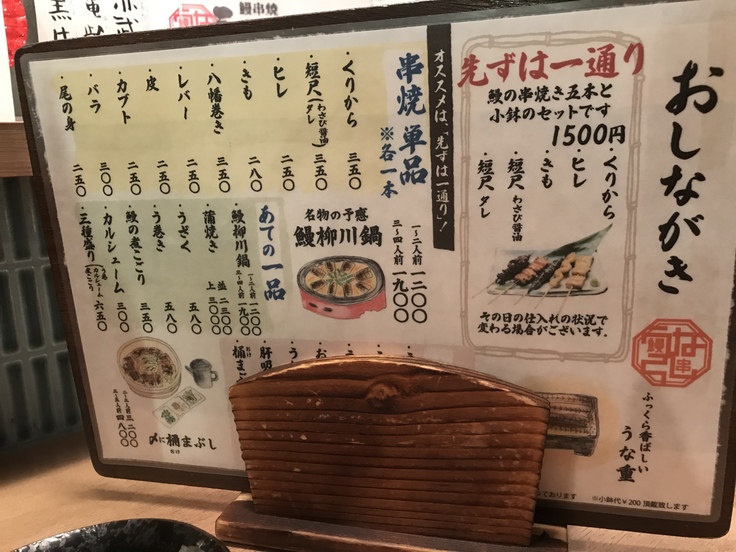 おしながき
先ずは一通り
鰻の串焼き五本と
小鉢のセットです
1500円
・くりから
・ヒレ
・きも
・短尺 わさび醤油
・短尺 タレ
その日の仕入れの状況で
変わる場合がございます。
ふっくら香ばしい
うな重
オススメは、「先ずは一通り」!
串焼 単品
※各一本
・くりから 三五〇
・短尺(わさび醤油/タレ) 三五〇
・ヒレ 二五〇
・きも 二八〇
・八幡巻き 三五〇
・レバー 二五〇
・皮 二五〇
・カブト 二五〇
・バラ 三〇〇
・尾の身 二五〇
名物の予感
鰻柳川鍋
一〜二人前 一二〇〇
三〜四人前 一九〇〇
あての一品
鰻柳川鍋 一〜二人前 一二〇〇
三〜四人前 一九〇〇
・蒲焼き 並 二三〇〇
上 三〇〇〇
・うざく 五八〇
・う巻き 五八〇
・鰻の煮こごり 三五〇
・カルシューム 三〇〇
・三種盛り 六五〇
〆に桶まぶし
おけ
肝吸
桶まぶ
※小鉢代¥200 頂戴致します
ております
鰻串焼